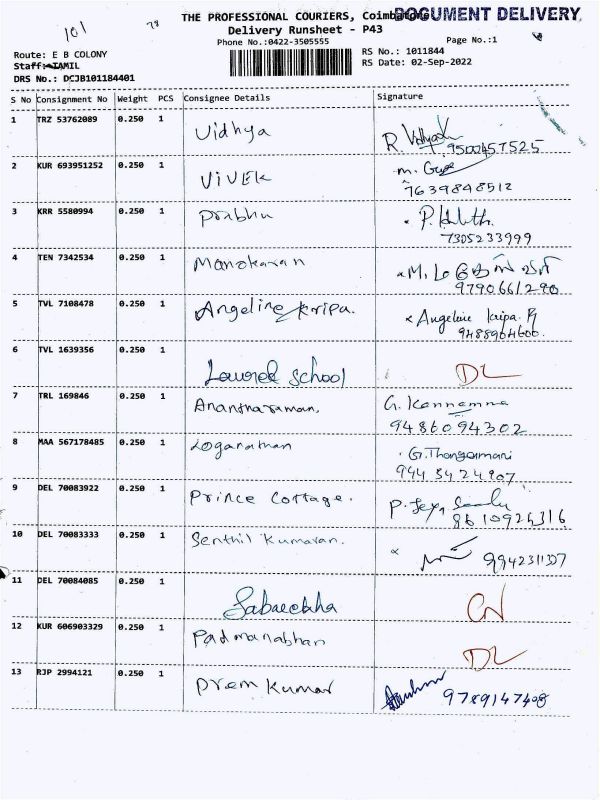 101
78
THE PROFESSIONAL COURIERS, Coimbatore
DOCUMENT DELIVERY
Delivery Runsheet - P43
Phone No.:0422-3505555
Page No.:1
Route: E B COLONY
RS No.: 1011844
Staff: TAMIL
RS Date: 02-Sep-2022
DRS No.: DCJB101184401
S No Consignment No Weight PCS Consignee Details Signature
1 TRZ 53762089 0.250 1 Vidhya R. Vidhya
9500457525
2 KUR 693951252 0.250 1 VIVEK
7639848512
3 KRR 5580994 0.250 1 Prabhu
7305233999
4 TEN 7342534 0.250 1 Manokaran
9790661290
5 TVL 7108478 0.250 1 Angeline Kripa. Angeline kripa. R
9488904600.
6 TVL 1639356 0.250 1 Laurel School DL
7 TRL 169846 0.250 1 Anantharaman, G. Kannamma
9486094302
8 MAA 567178485 0.250 1 Loganathan G. Thangamani
9445424907
9 DEL 70083922 0.250 1 Prince Cottage.
8610924316
10 DEL 70083333 0.250 1 Senthil Kumaran. 9942311327
11 DEL 70084085 0.250 1
12 KUR 606903329 0.250 1 Padmanabhan DL
13 RJP 2994121 0.250 1 Prem Kumar 9789147408